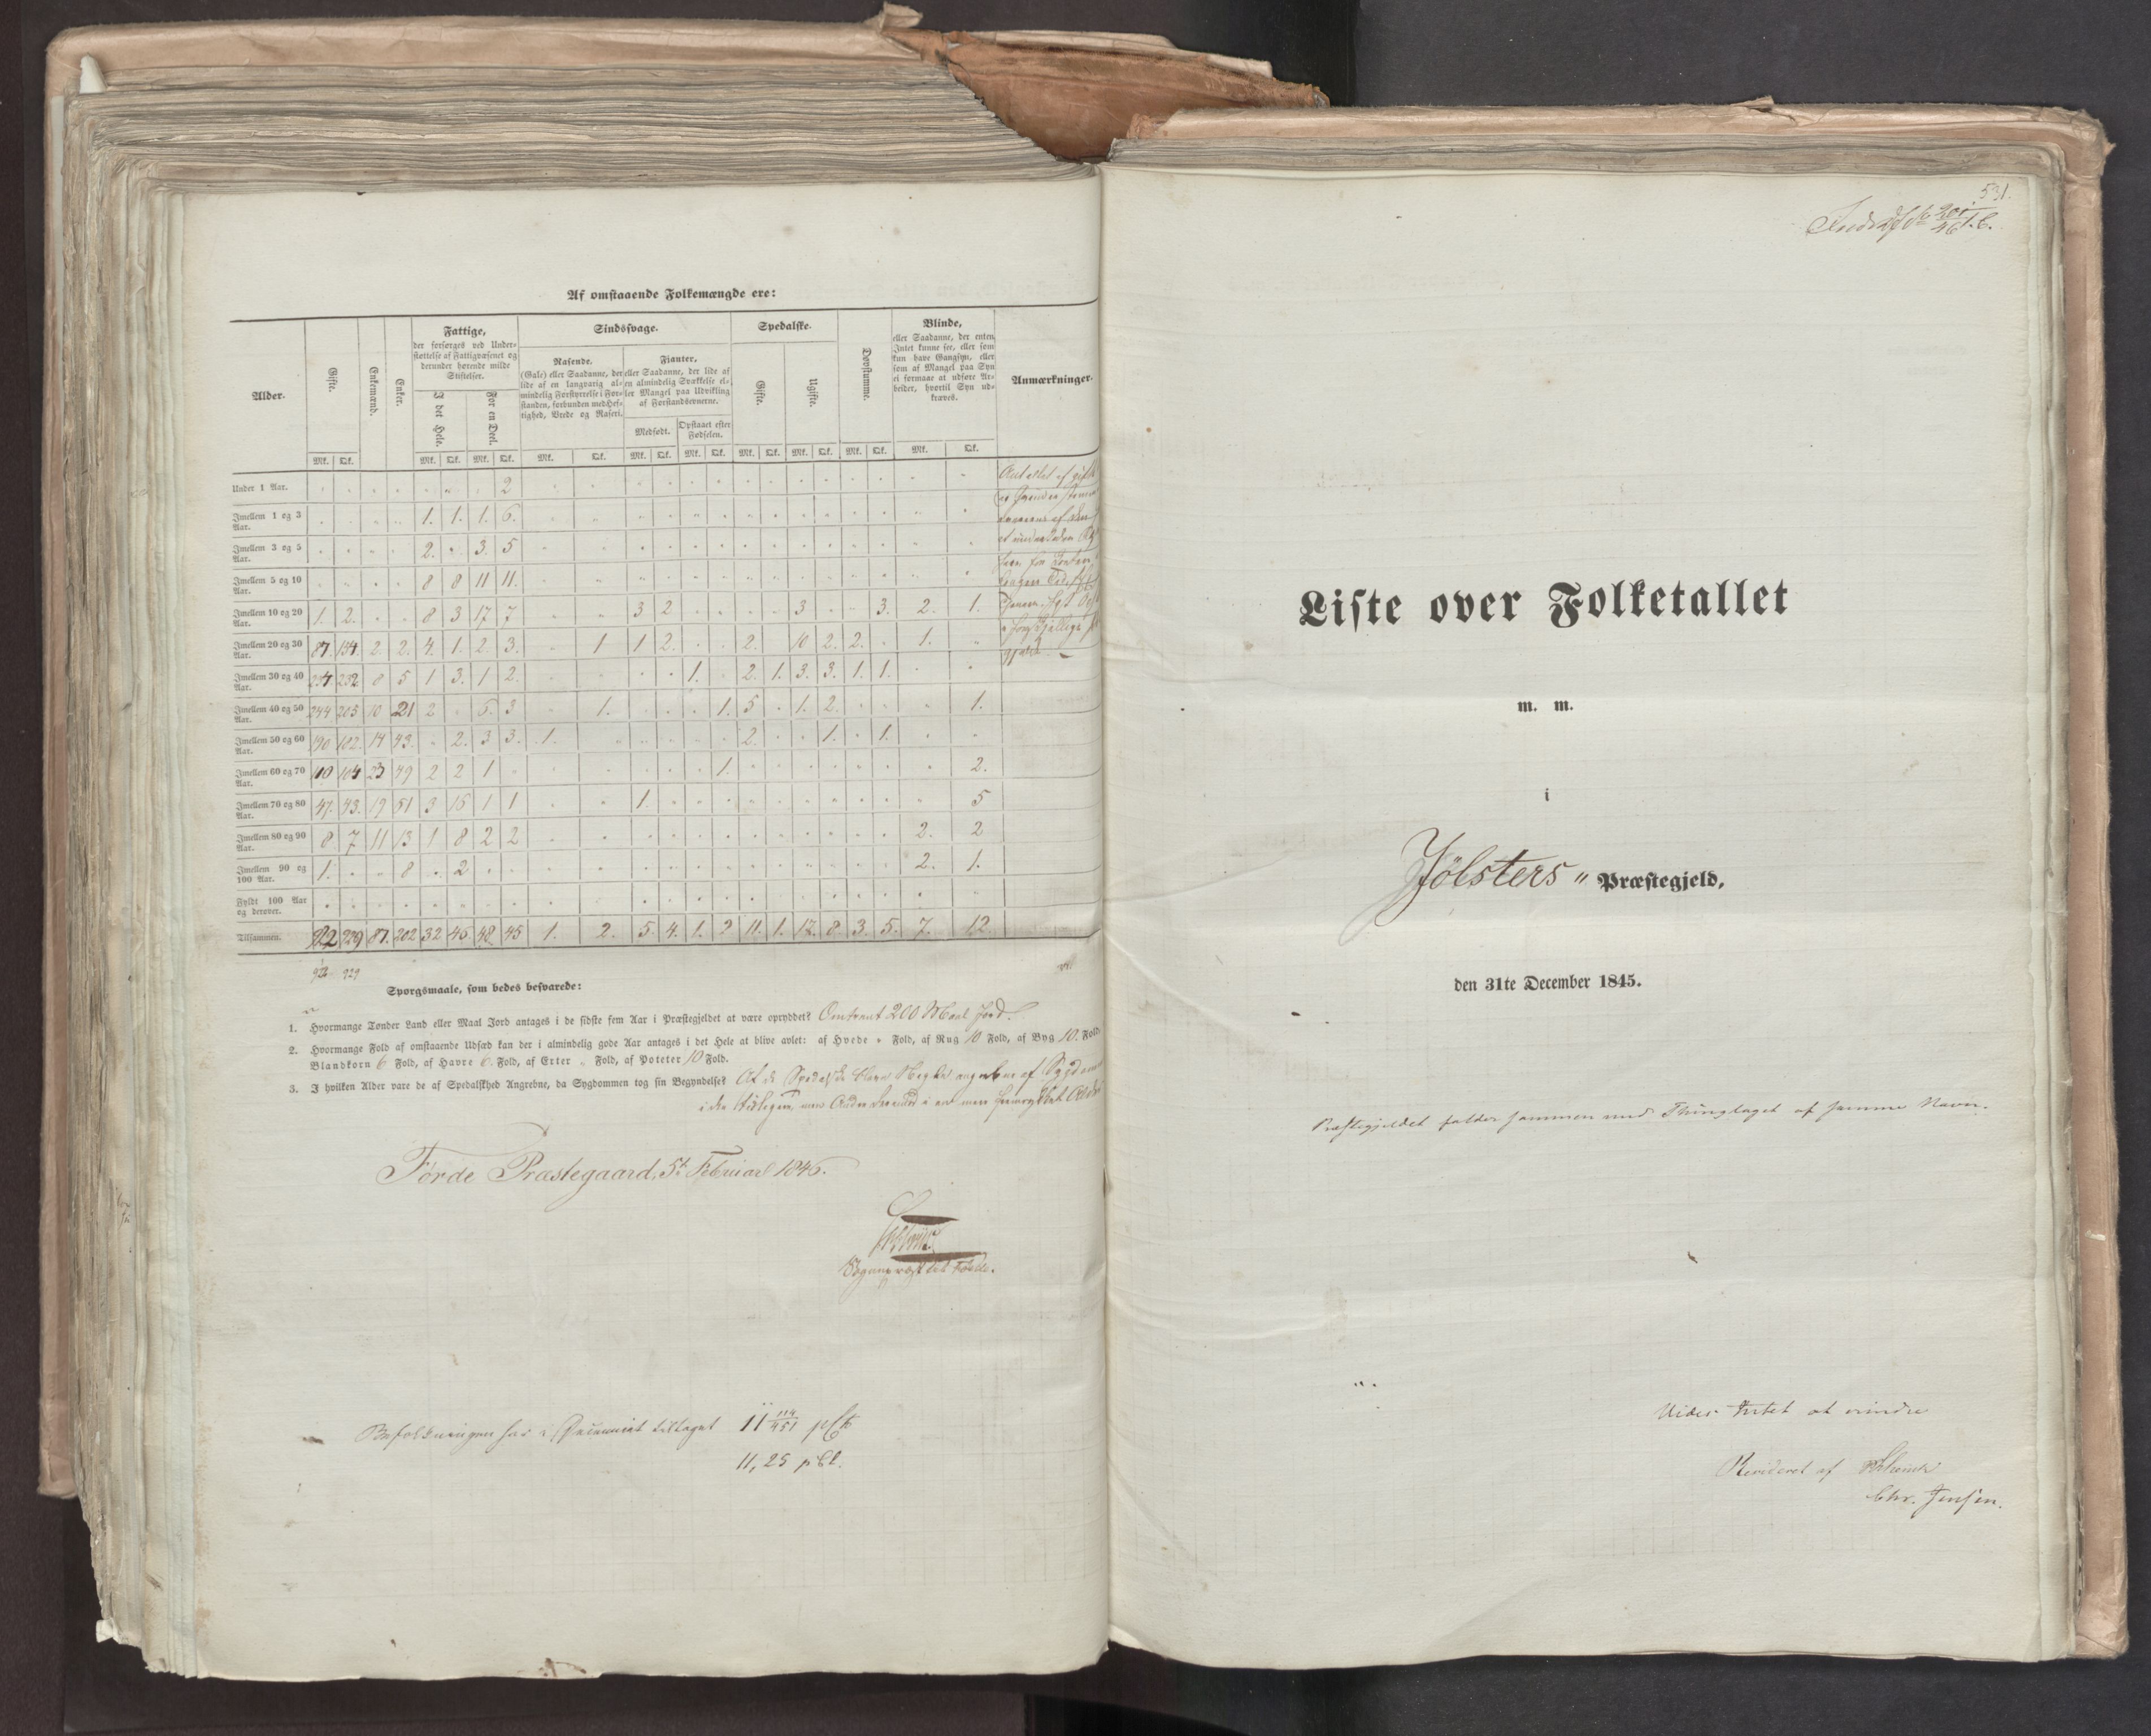 Af omstaaende Folkemængde ere:
Alder.
Gifte.
Enkemænd.
Enker.
Fattige,
der forsørges ved Under-
støttelse af Fattigvæsenet og
derunder hørende milde
Stiftelser.
I det Hele.
For en Deel.
Sindssvage.
Rasende.
(Gale) eller Saadanne, der
lide af en langvarig al-
mindelig Forstyrrelse i For-
standen, forbunden med Hef-
tighed, Vrede og Raseri.
Fjanter,
eller Saadanne, der lide af
en almindelig Svækkelse el-
ler Mangel paa Udvikling
af Forstandsevnerne.
Medfødt.
Opstaaet efter
Fødselen.
Spedalske.
Gifte.
Ugifte.
Døvstumme.
Blinde,
eller Saadanne, der enten
Intet kunne see, eller som
kun have Gangsyn, eller
som af Mangel paa Syn
ei formaae at udføre Ar-
beider, hvortil Syn ud-
kræves.
Anmærkninger.
Mk. Qk. Mk. Qk. Mk. Qk. Mk. Qk. Mk. Qk. Mk. Qk. Mk. Qk. Mk. Qk. Mk. Qk. Mk. Qk.
Under 1 Aar. 2
Imellem 1 og 3 Aar. 1. 1. 1. 6.
Imellem 3 og 5 Aar. 2. " 3. 5
Imellem 5 og 10 Aar. 8 8 11 11.
Imellem 10 og 20 Aar. 1. 2. 8 3 17 7 3 2 3 3. 2. 1.
Imellem 20 og 30 Aar. 87. 154. 2. 2. 4. 1. 2. 3. 1 1 2. 2. 10 2. 2. 1.
Imellem 30 og 40 Aar. 234 232. 8 5 1 3. 1 2. 1. 2. 1. 3. 3. 1. 1.
Imellem 40 og 50 Aar. 244 203 10 21 2 6. 3 1. 1. 5 1. 2. 1.
Imellem 50 og 60 Aar. 190 182. 14 43. 2. 3 3. 1. 2. 1. 1.
Imellem 60 og 70 Aar. 110 104 23 49 2 2 1 1. 2.
Imellem 70 og 80 Aar. 47. 43. 19 51 3 16 1 1 1. 5
Imellem 80 og 90 Aar. 8 7 11 13 1 8 2 2 2. 2
Imellem 90 og 100 Aar. 1. 8 2 2. 1.
Fyldt 100 Aar og derover.
Tilsammen. 922 929 87. 202 32 45 48 45 1. 2. 5. 4. 1. 2 11. 1. 17. 8. 3. 5. 7. 12.
922 929
Spørgsmaale, som bedes besvarede:
1. Hvormange Tønder Land eller Maal Jord antages i de sidste fem Aar i Præstegjeldet at være opryddet? Omtrent 200 Maal Jord.
2. Hvormange Fold af omstaaende Udsæd kan der i almindelig gode Aar antages i det Hele at blive avlet: af Hvede " Fold, af Rug 10 Fold, af Byg 10. Fold,
Blandkorn 6 Fold, af Havre 6. Fold, af Erter " Fold, af Poteter 10 Fold.
3. I hvilken Alder vare de af Spedalskhed Angrebne, da Sygdommen tog sin Begyndelse? Af de Spedalske blev Nogle angrebne af Sygdommen
i den tidligere, men Andre derimod i en mere fremrykket Alder
Førde Præstegaard, 5t Februar 1846.
Sogneprest til Førde.
Befolkningen har i Decenniet tiltaget 11 114/451 pCt
11,25 pCt.
531.
Liste over Folketallet
m. m.
i
Jölsters " Præstegjeld,
den 31te December 1845.
Præstegjeldet falder sammen med Thinglaget af samme Navn.
Vides Intet at erindre
Revideret af
Chr. Jensen.